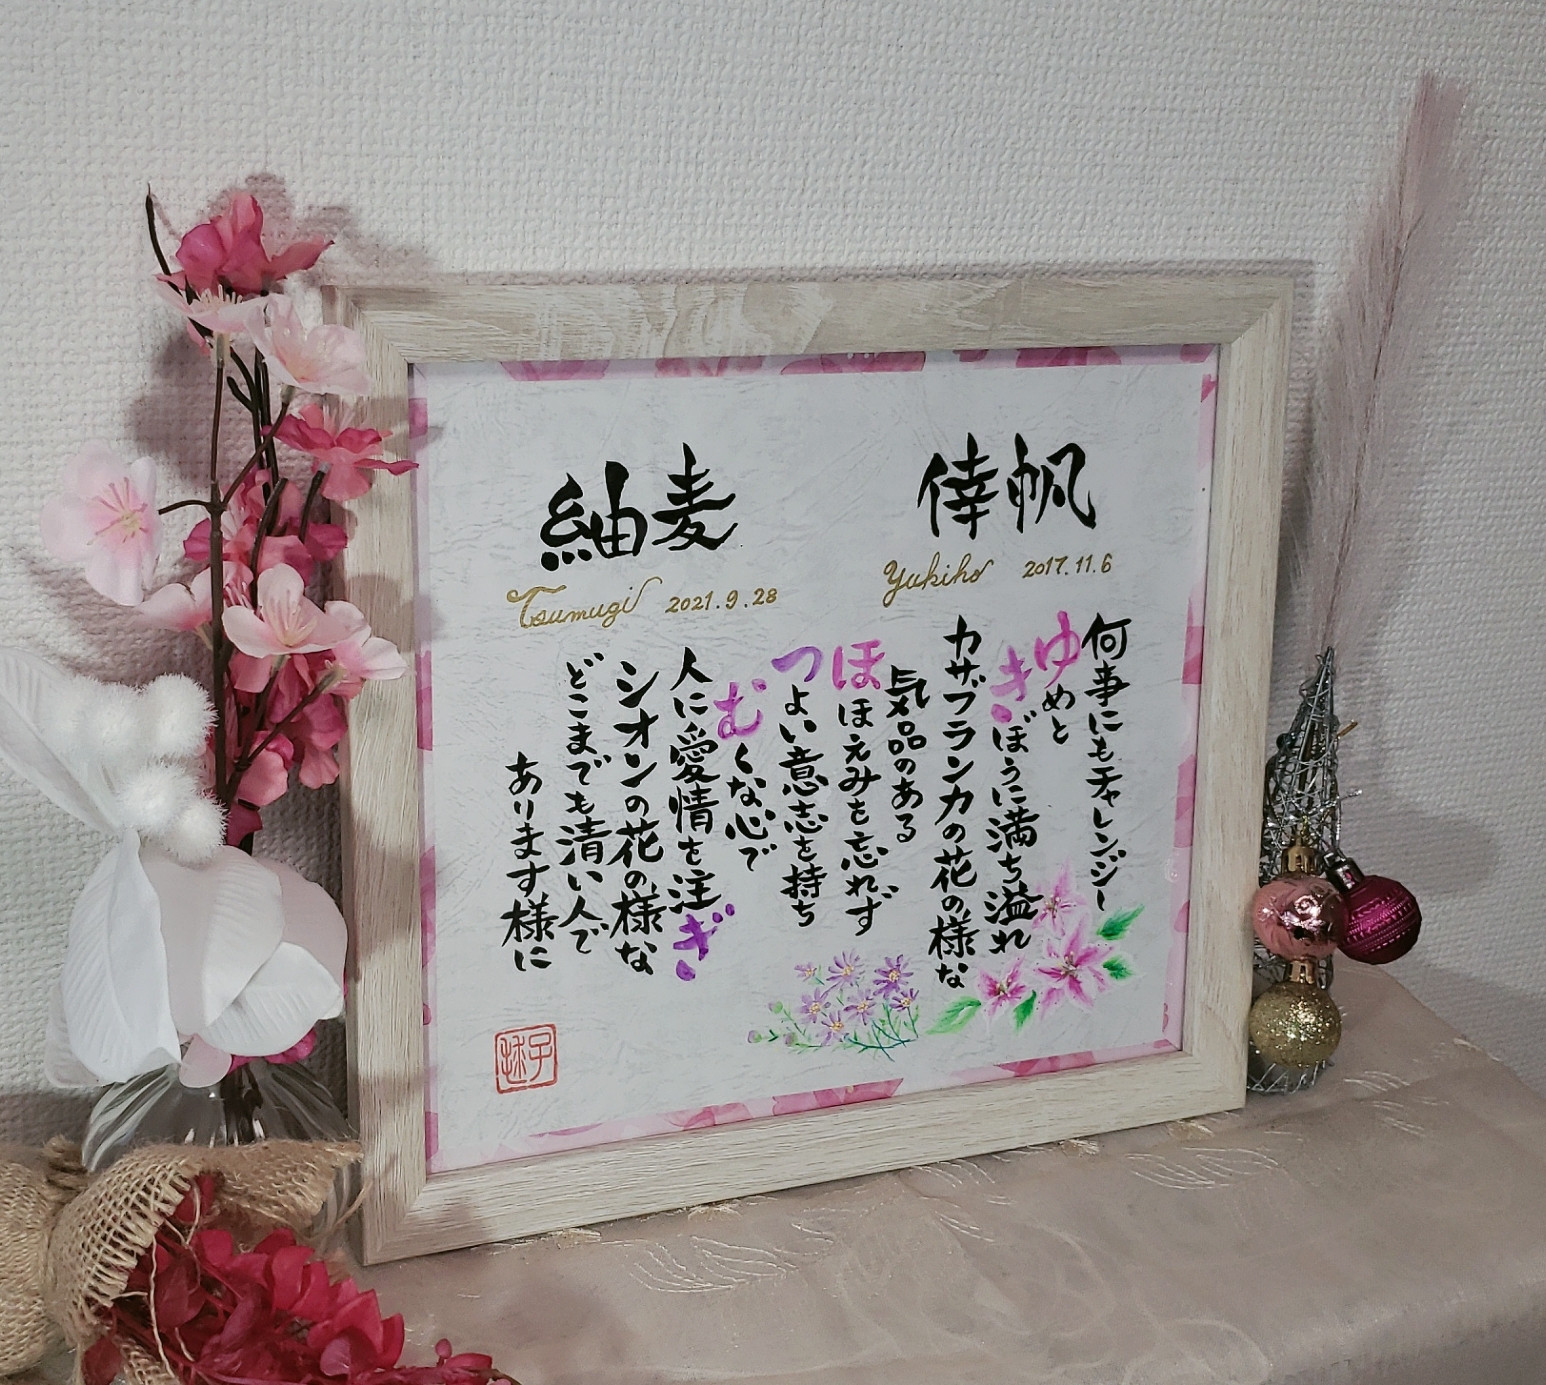 倖帆
Yukiho 2017.11.6
何事にもチャレンジし
ゆめと
きぼうに満ち溢れ
カサブランカの花の様な
気品のある
ほほえみを忘れず
紬麦
Tsumugi 2021.9.28
つよい意志を持ち
むくな心で
人に愛情を注ぎ
シオンの花の様な
どこまでも清い人で
あります様に